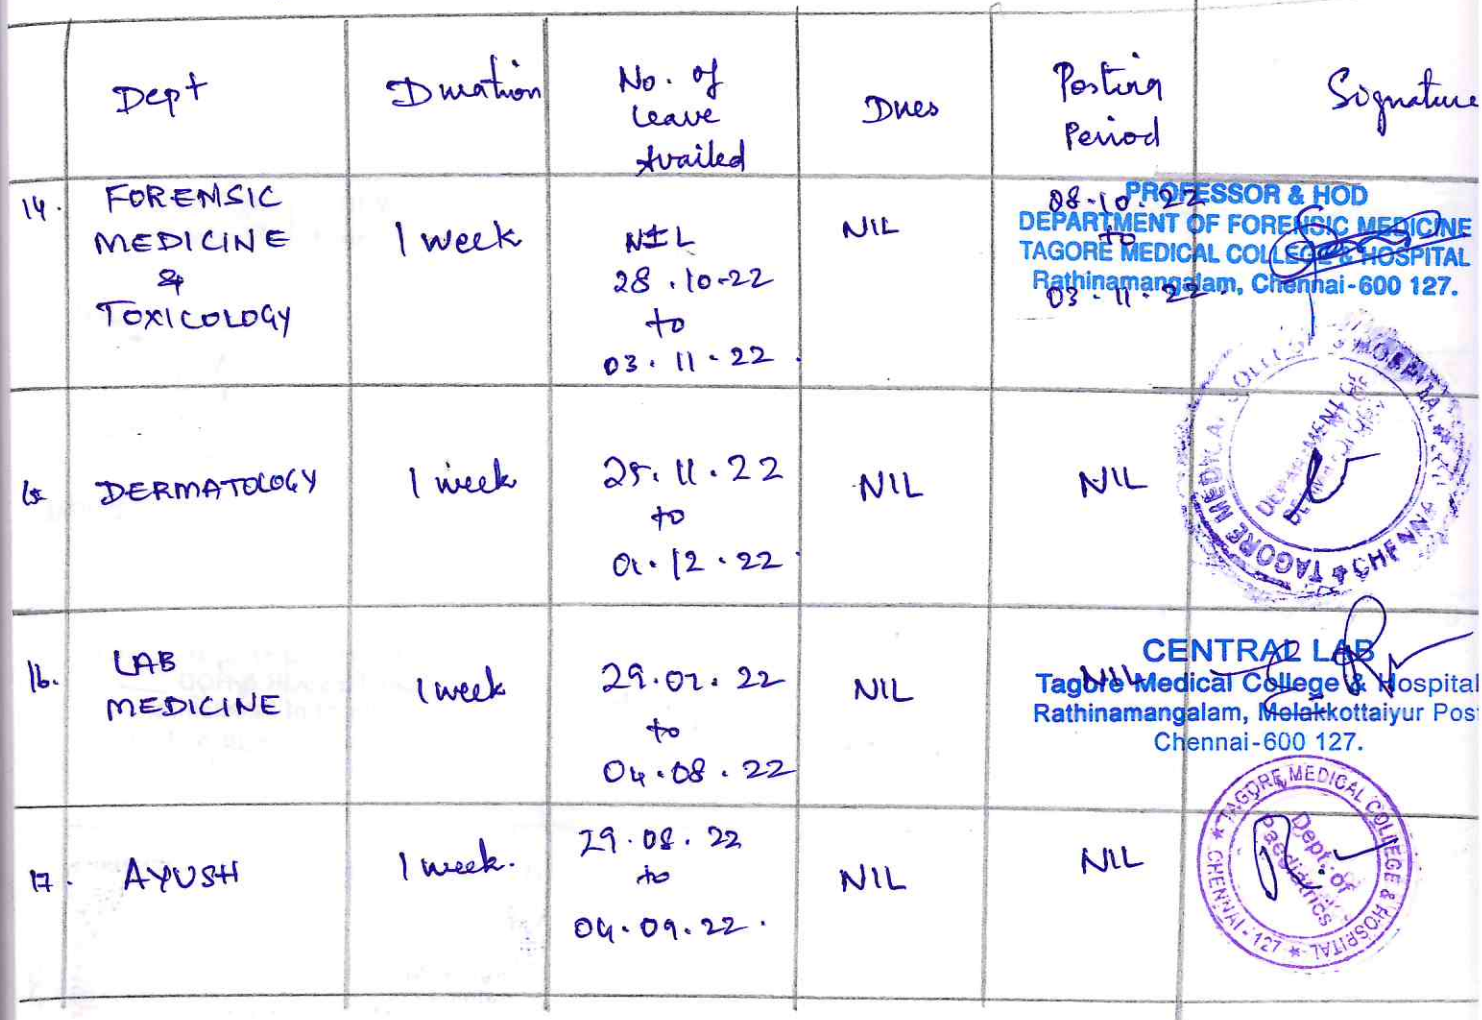 Dept
Duration
No. of
Leave
Availed
Dues
Posting
Period
Signature
14.
FORENSIC
MEDICINE
&
TOXICOLOGY
1 week
NIL
28.10-22
to
03.11-22.
NIL
08-10.22
to
03-11-22.
PROFESSOR & HOD
DEPARTMENT OF FORENSIC MEDICINE
TAGORE MEDICAL COLLEGE & HOSPITAL
Rathinamangalam, Chennai-600 127.
DERMATOLOGY
1 week
25.11.22
to
01.12.22
NIL
NIL
TAGORE MEDICAL COLLEGE & HOSPITAL
CHENNAI
DEPARTMENT OF
16.
LAB
MEDICINE
1 week
29.07.22
to
04.08.22
NIL
NIL
CENTRAL LAB
Tagore Medical College & Hospital
Rathinamangalam, Melakkottaiyur Pos
Chennai-600 127.
17.
AYUSH
1 week.
29.08.22
to
04.09.22.
NIL
NIL
TAGORE MEDICAL COLLEGE & HOSPITAL
CHENNAI-127
Dept. of
Paediatrics